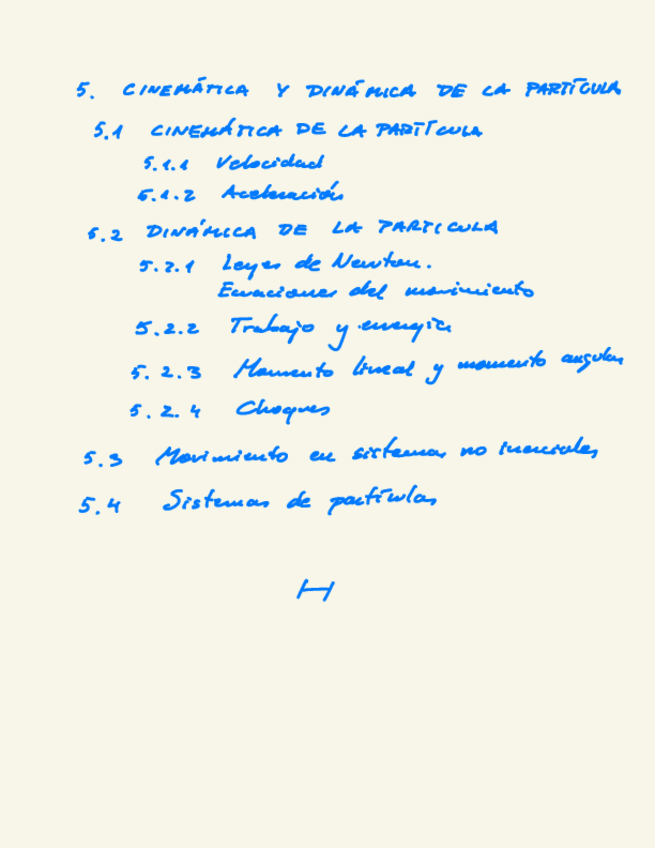 5. CINEMÁTICA Y DINÁMICA DE LA PARTÍCULA
5.1 CINEMÁTICA DE LA PARTÍCULA
5.1.1 Velocidad
5.1.2 Aceleración
5.2 DINÁMICA DE LA PARTICULA
5.2.1 Leyes de Newton.
Ecuaciones del movimiento
5.2.2 Trabajo y energía
5.2.3 Momento lineal y momento angular
5.2.4 Choques
5.3 Movimiento en sistemas no inerciales
5.4 Sistemas de partículas